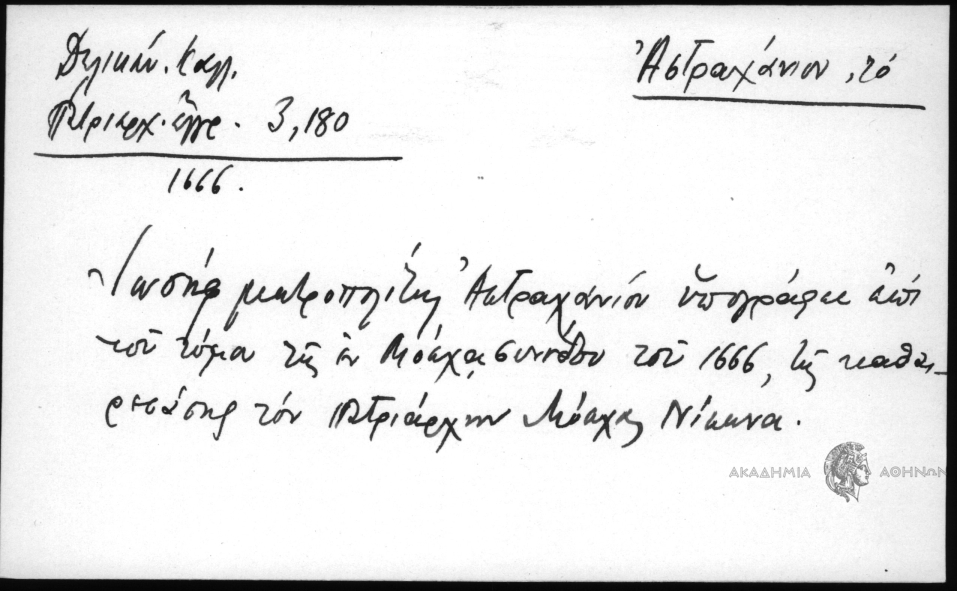 Δελικάν. Καλ.
Πατριαρχ. ἔγγρ. 3,180
1666.
Ἀστραχάνιον, τό
Ἰωσήφ μητροπολίτης Ἀστραχανίου ὑπογράφει ἐπί
τοῦ τόμου τῆς ἐν Μόσχᾳ συνόδου τοῦ 1666, τῆς καθαι-
ρεσάσης τόν πατριάρχην Μόσχας Νίκωνα.
ΑΚΑΔΗΜΙΑ ΑΘΗΝΩΝ